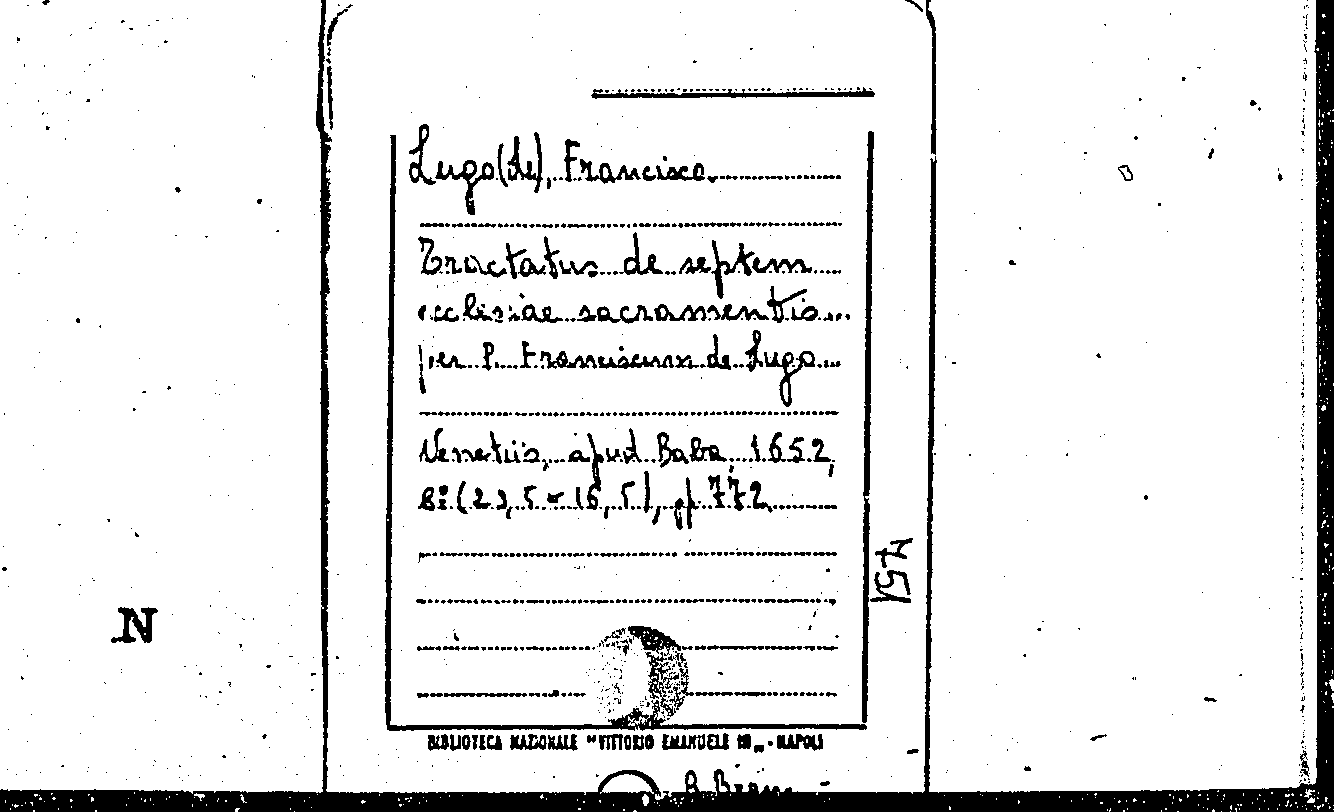 Lugo (de), Francisco.
Tractatus de septem
ecclesiae sacramentis...
per P. Franciscum de Lugo...
Venetiis, apud Baba, 1652,
8º (23,5 × 16,5), pp 772
BIBLIOTECA NAZIONALE "VITTORIO EMANUELE III" - NAPOLI
N